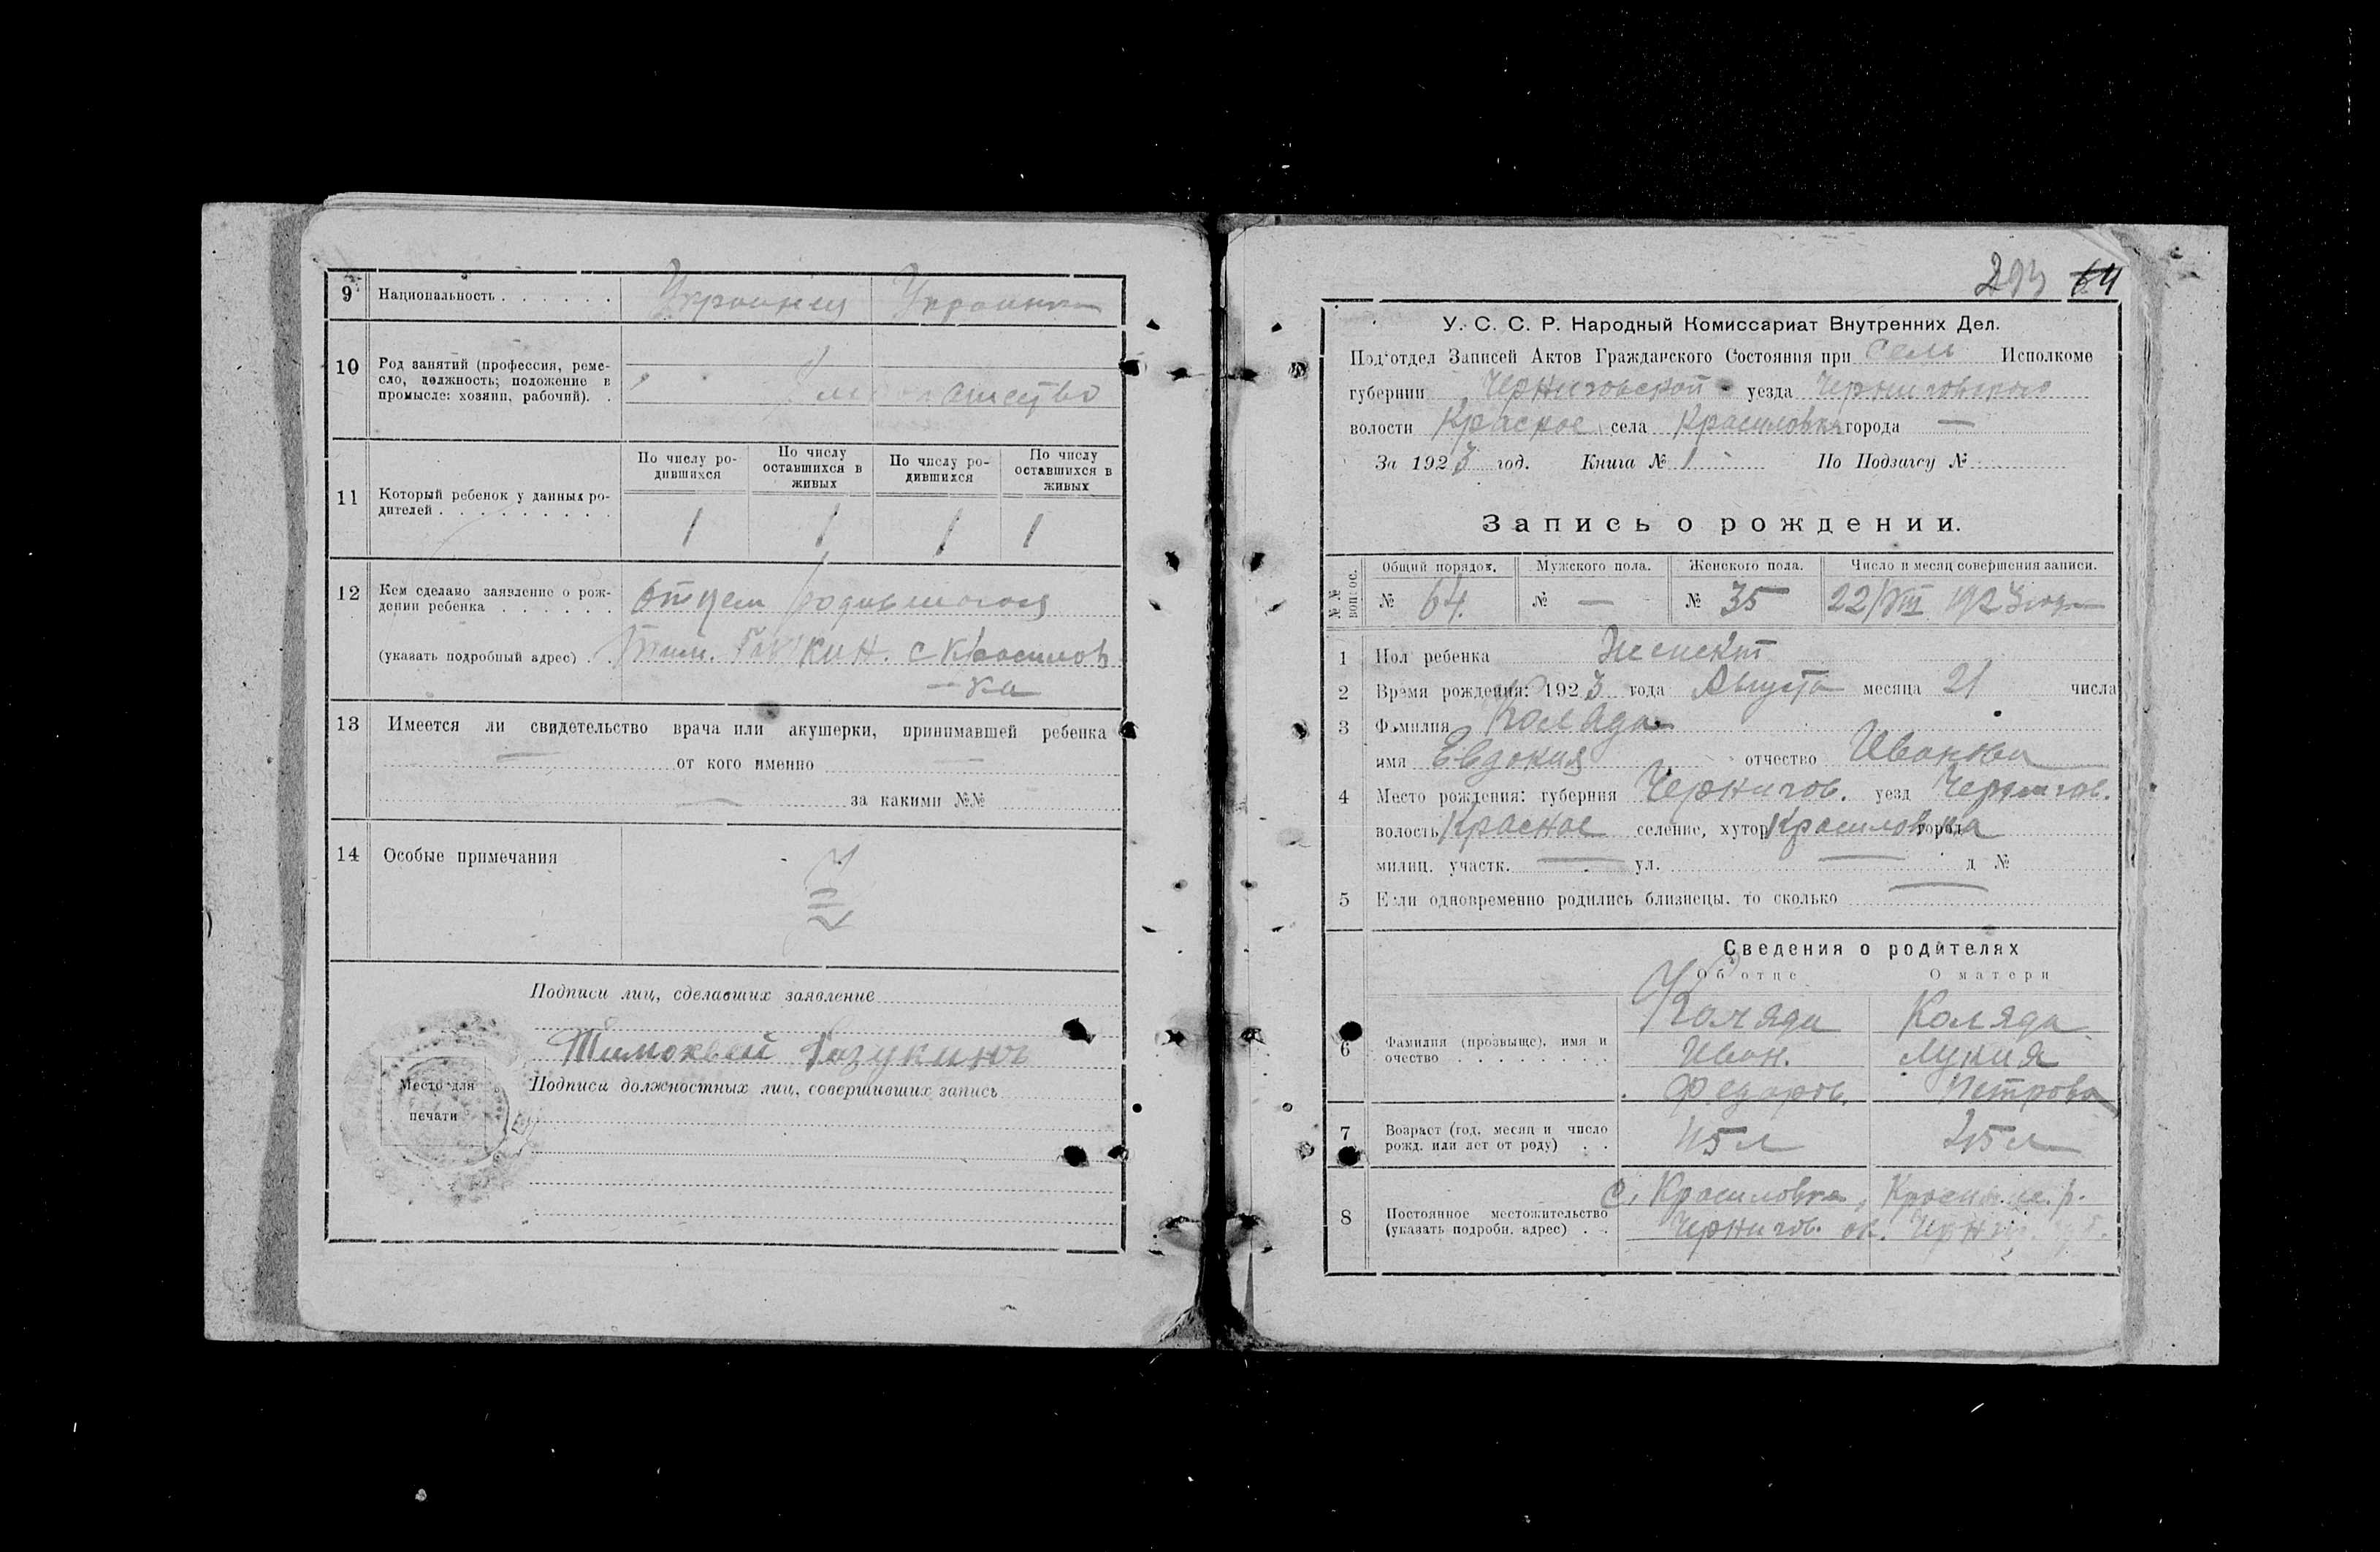 9 Национальность . . . . . . Украинец Украинка
10 Род занятий (профессия, реме-
сло, должность; положение в
промысле: хозяин, рабочий). .
11 Который ребенок у данных ро-
дителей . . . . . . . . .
По числу ро-
дившихся
По числу
оставшихся в
живых
По числу ро-
дившихся
По числу
оставшихся в
живых
1 1 1 1
12 Кем сделано заявление о рож-
дении ребенка . . . . . . Отцем родившогося
(указать подробный адрес) . . Тим. с Красилов
-ка
13 Имеется ли свидетельство врача или акушерки, принимавшей ребенка
— от кого именно —
— за какими №№
14 Особые примечания
Подписи лиц, сделавших заявление
Тимохвей Газукинъ
Подписи должностных лиц, совершивших запись
Место для
печати
293 64
У. С. С. Р. Народный Комиссариат Внутренних Дел.
Под'отдел Записей Актов Гражданского Состояния при Сель Исполкоме
губернии Черниговской уезда Черниговского
волости Красное села Красиловка города —
За 1923 год. Книга № 1 По Подзагсу №
Запись о рождении.
№ №
вопрос.
Общий порядок. Мужского пола. Женского пола. Число и месяц совершения записи.
№ 64. № — № 35 22/VIII 1923 года
1 Пол ребенка Женскт
2 Время рождения: 1923 года Августа месяца 21 числа
3 Фамилия Коляда
имя Евдокия отчество Иванова
4 Место рождения: губерния Чернигов. уезд Чернигов.
волость Красное селение, хутор Красиловка города
милиц. участк. — ул. — д №
5 Если одновременно родились близнецы, то сколько —
Сведения о родителях
Об отце О матери
6 Фамилия (прозвище), имя и
очество . . . . . . . .
Коляда Коляда
Иван. Лукия
Федоров. Петрова
7 Возраст (год, месяц и число
рожд. или лет от роду) . .
45 л 25 л
8 Постоянное местожительство
(указать подробн. адрес) . .
с. Красиловка,
Чернигов. ок.